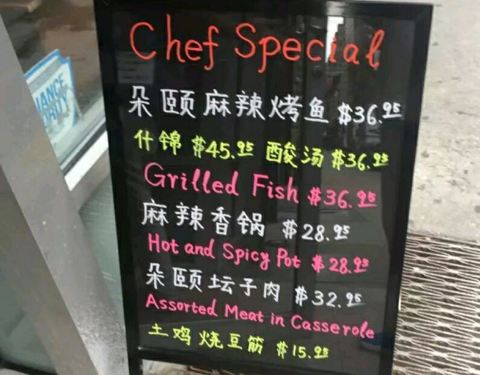 Chef Special
朵颐麻辣烤鱼 $36.95
什锦 $45.95 酸汤 $36.95
Grilled Fish $36.95
麻辣香锅 $28.95
Hot and Spicy Pot $28.95
朵颐坛子肉 $32.95
Assorted Meat in Casserole
土鸡烧豆筋 $15.95